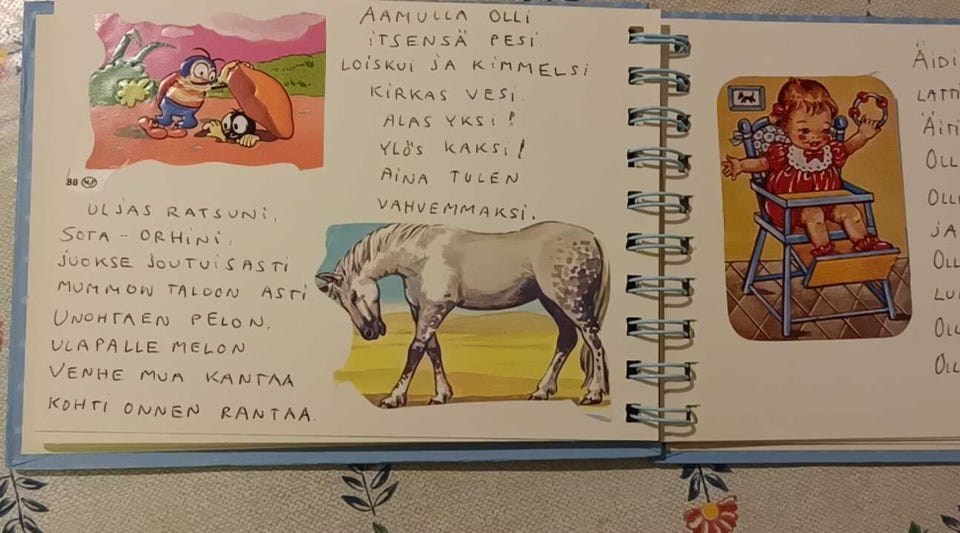 AAMULLA OLLI
ITSENSÄ PESI
LOISKUI JA KIMMELSI
KIRKAS VESI.
ALAS YKSI!
YLÖS KAKSI!
AINA TULEN
VAHVEMMAKSI.
88
ULJAS RATSUNI,
SOTA-ORHINI,
JUOKSE JOUTUISASTI
MUMMON TALOON ASTI
UNOHTAEN PELON,
ULAPALLE MELON
VENHE MUA KANTAA
KOHTI ONNEN RANTAA.
ÄIDI
LATTI
ÄITI
OLL
OLLI
JA
OLL
LU
OLL
OLL